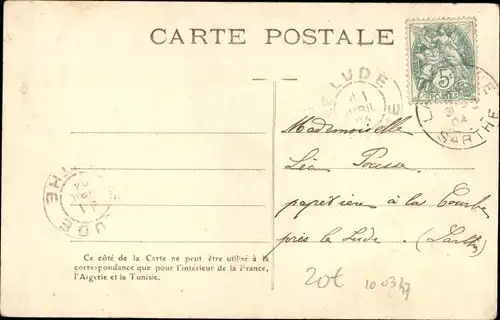 CARTE POSTALE
5
LUDE
1
AVRIL
SARTHE
31
04
Mademoiselle
Léa Pousse
papetière à la Courbe
près le Lude (Sarthe)
LUDE
Ce côté de la Carte ne peut être utilisé à la
correspondance que pour l'intérieur de la France,
l'Algérie et la Tunisie.
20€